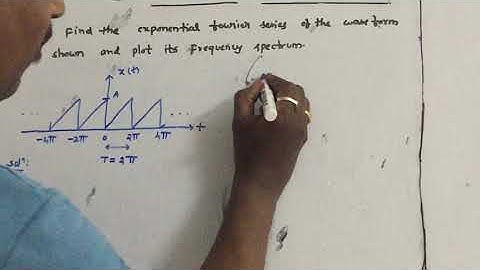 Find the exponential fourier series of the wave form
shown and plot its frequency spectrum.
x(t)
A
-4π -2π 0 2π 4π t
T = 2π
Solⁿ: